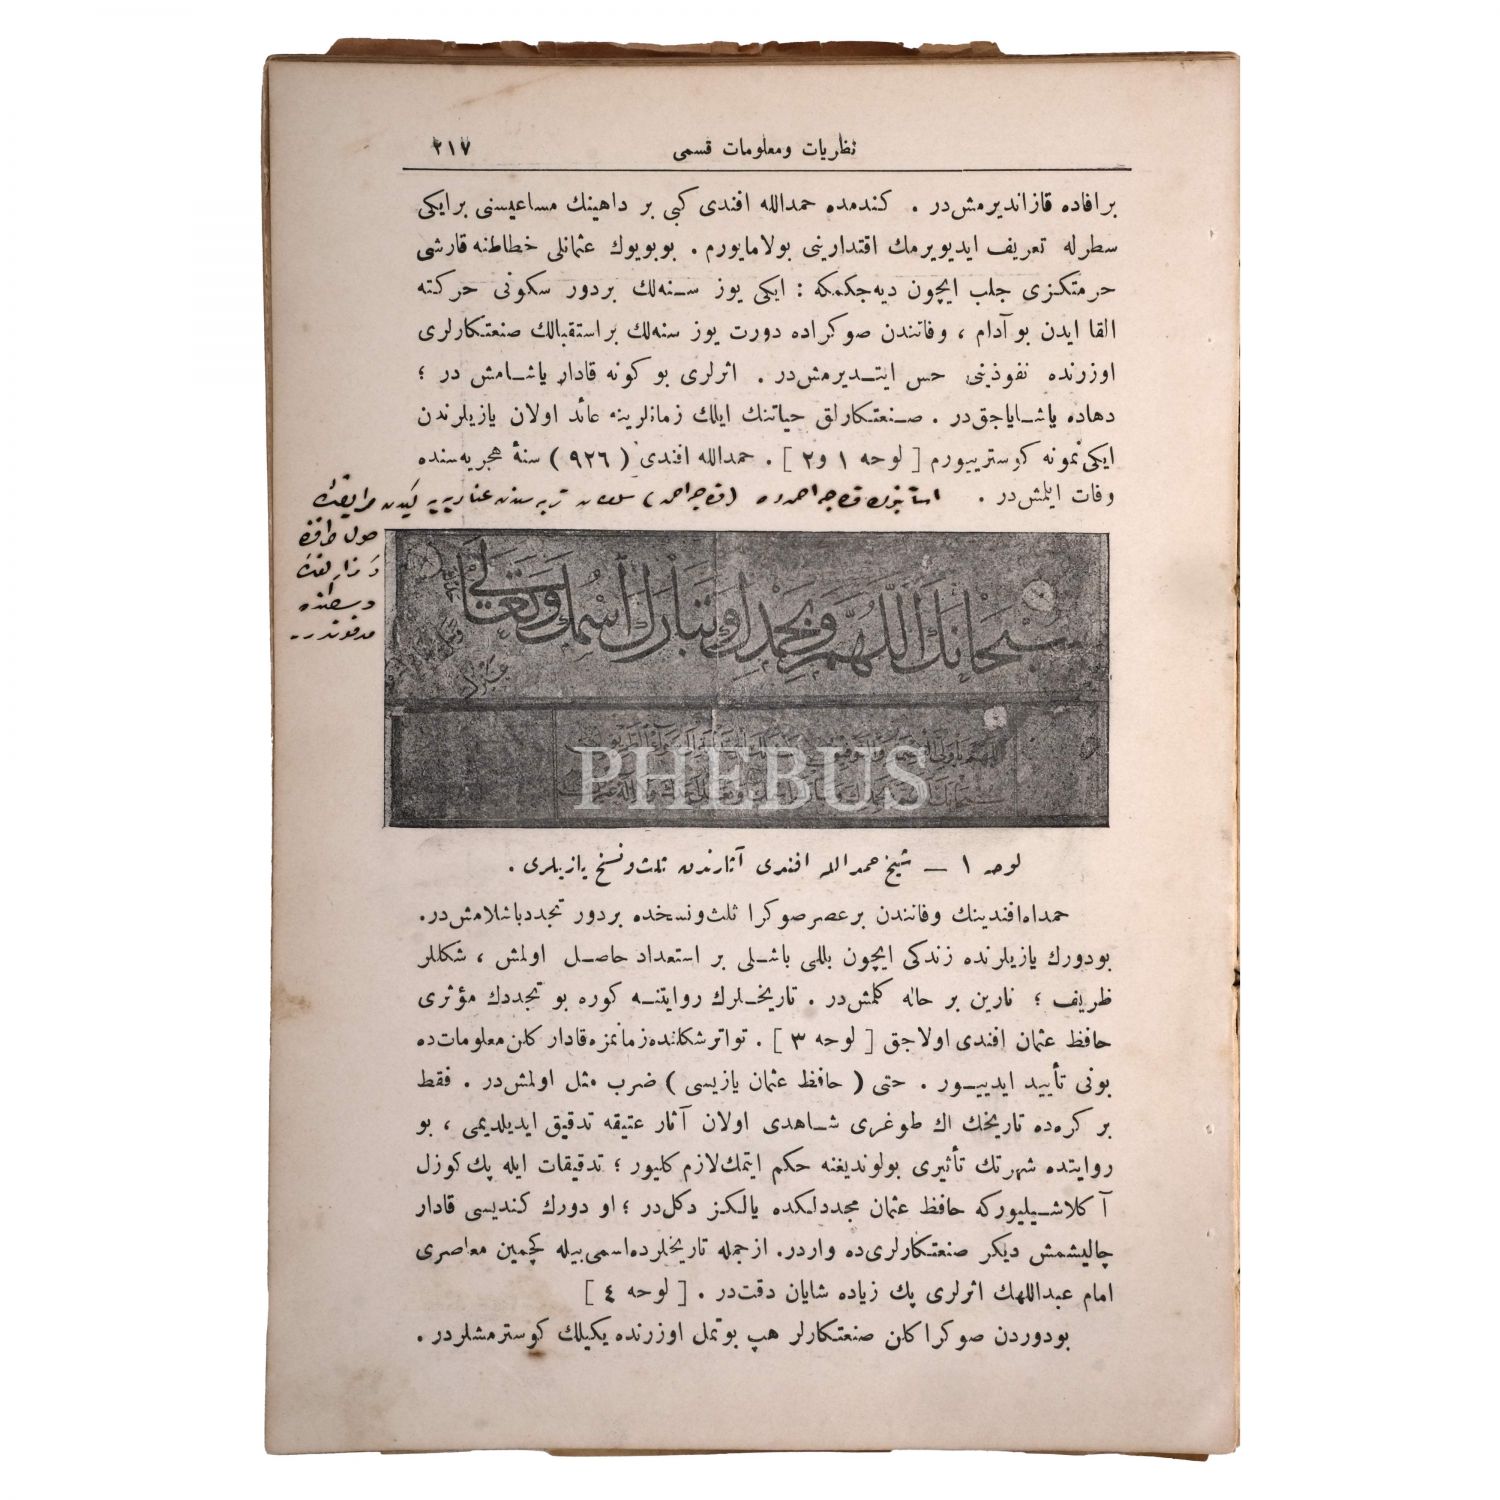 نظريات ومعلومات قسمى ٢١٧
برافاده قازانديرمش‌در . كندمده حمدالله افندى كبى بر داهينك مساعيسنى برايكى
سطرله تعريف ايديويرمك اقتدارينى بولامايورم . بوبويوك عثمانلى خطاطنه قارشى
حرمتكزى جلب ايچون ديه‌جكمكه : ايكى يوز سنه‌لك بردور سكونى حركته
القا ايدن بو آدام ، وفاتندن صوكراده دورت يوز سنه‌لك براستقبالك صنعتكارلرى
اوزرنده نفوذينى حس ايتديرمش‌در . اثرلرى بو كونه قادار ياشامش در ؛
دهاده ياشاياجق‌در . صنعتكارلق حياتنك ايلك زمانلرينه عائد اولان يازيلرندن
ايكى نمونه كوسترييورم [ لوحه ١ و٢ ] . حمدالله افندى ( ٩٢٦ ) سنهٔ هجريه‌سنده
وفات ايلمش‌در .
صول طرافنده
مدفوندر
سبحانك اللهم وبحمدك وتبارك اسمك وتعالى
PHEBUS
لوحه ١ — شيخ حمدالله افندى آثارندن ثلث ونسخ يازيلرى .
حمداه‌افندينك وفاتندن برعصرصوكرا ثلث‌ونسخده بردور تجددباشلامش‌در.
بودورك يازيلرنده زندكى ايچون بللى باشلى بر استعداد حاصل اولمش ، شكللر
ظريف ؛ نارين بر حاله كلمش‌در . تاريخلرك روايتنه كوره بو تجددك مؤثرى
حافظ عثمان افندى اولاجق [ لوحه ٣ ] . تواترشكلنده‌زمانمزه‌قادار كلن‌معلومات‌ده
بونى تأييد ايدييور . حتى ( حافظ عثمان يازيسى ) ضرب مثل اولمش‌در . فقط
بر كره‌ده تاريخك اك طوغرى شاهدى اولان آثار عتيقه تدقيق ايديلديمى ، بو
روايتده شهرتك تأثيرى بولونديغنه حكم ايتمك‌لازم كليور ؛ تدقيقات ايله پك‌كوزل
آكلاشيليوركه حافظ عثمان مجددلكده يالكز دكل‌در ؛ او دورك كنديسى قادار
چاليشمش ديكر صنعتكارلرى‌ده واردر. ازجمله تاريخلرده‌اسمى‌بيله كچمين معاصرى
امام عبداللهك اثرلرى پك زياده شايان دقت‌در . [ لوحه ٤ ]
بودوردن صوكراكلن صنعتكارلر هپ بوتمل اوزرنده يكيلك كوسترمشلردر .